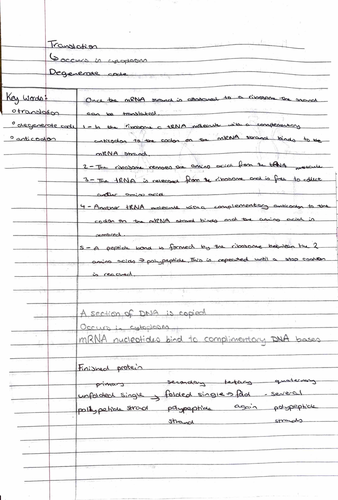 Translation
↳ occurs in cytoplasm
Degenerate code
Key words:
o translation
o degenerate code
o anticodon
Once the mRNA strand is attached to a ribosome the strand
can be translated.
1 - In the ribosome a tRNA molecule with a complementary
anticodon to the codon on the mRNA strand binds to the
mRNA strand.
2 - The ribosome removes the amino acid from the tRNA molecule
3 - The tRNA is released from the ribosome and is free to collect
another amino acid
4 - Another tRNA molecule with a complementary anticodon to the
codon on the mRNA strand binds and the amino acid is
removed.
5 - A peptide bond is formed by the ribosome between the 2
amino acids → polypeptide. This is repeated until a stop codon
is reached.
A section of DNA is copied
Occurs in cytoplasm
mRNA nucleotides bind to complimentary DNA bases
Finished protein
primary secondary tertiary quaternary
unfolded single → folded single → fold . several
polypeptide strand polypeptide again polypeptide
strand strands